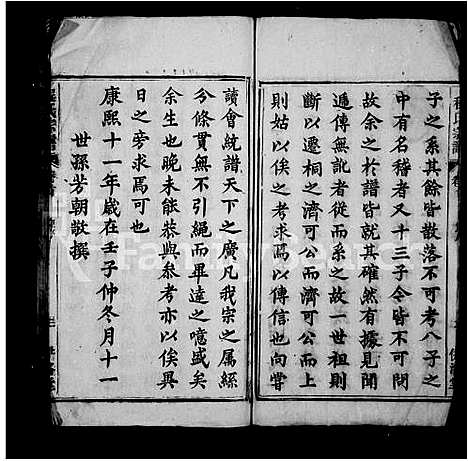 子之系其餘皆散落不可考八子之
中有名稽者又十三子令皆不可閱
故余之於譜皆就其確然有據見聞
遞傳無訛者從而系之故一世祖則
斷以遷桐之濟可公而濟可公而上
則姑以俟之考求焉以傳信也向嘗
讀會統譜天下之廣凡我宗之屬絲
分條貫無不引繩而畢達之噫盛矣
余生也晚未能恭與參考亦以俟異
日之旁求焉可也
康熙十一年歲在壬子仲冬月十一
世孫芳朝敬撰
FamilySearch